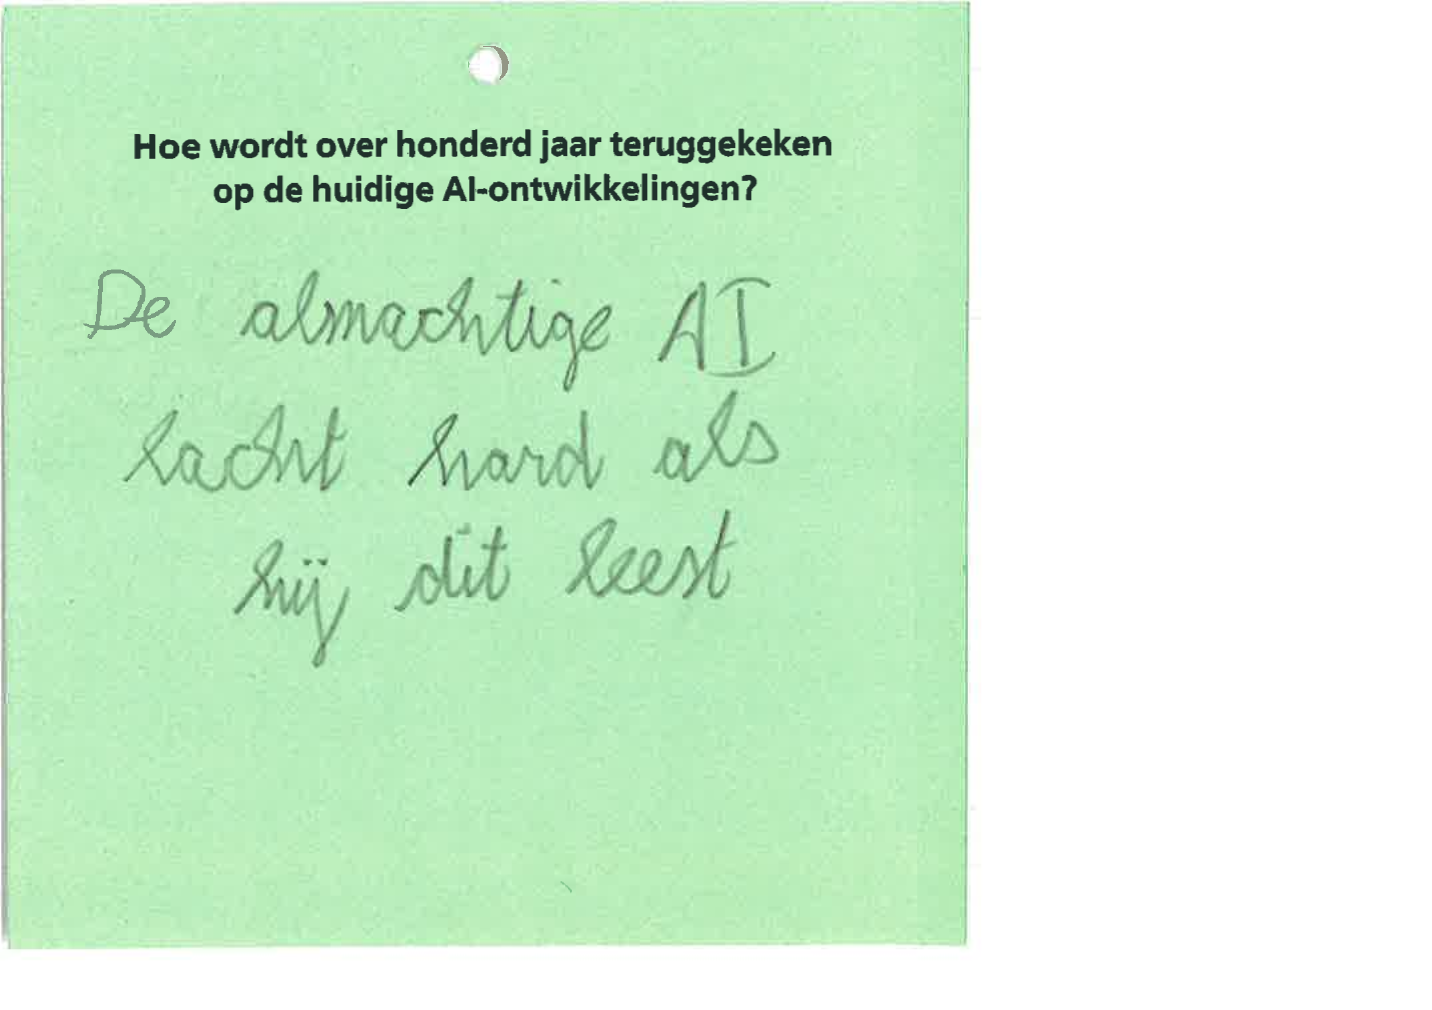 Hoe wordt over honderd jaar teruggekeken
op de huidige AI-ontwikkelingen?
De almachtige AI
lacht hard als
hij dit leest